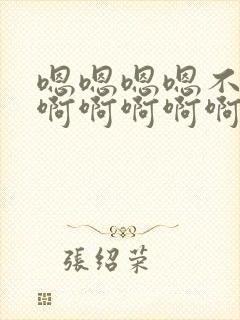 嗯嗯嗯嗯不
啊啊啊啊啊
張绍荣